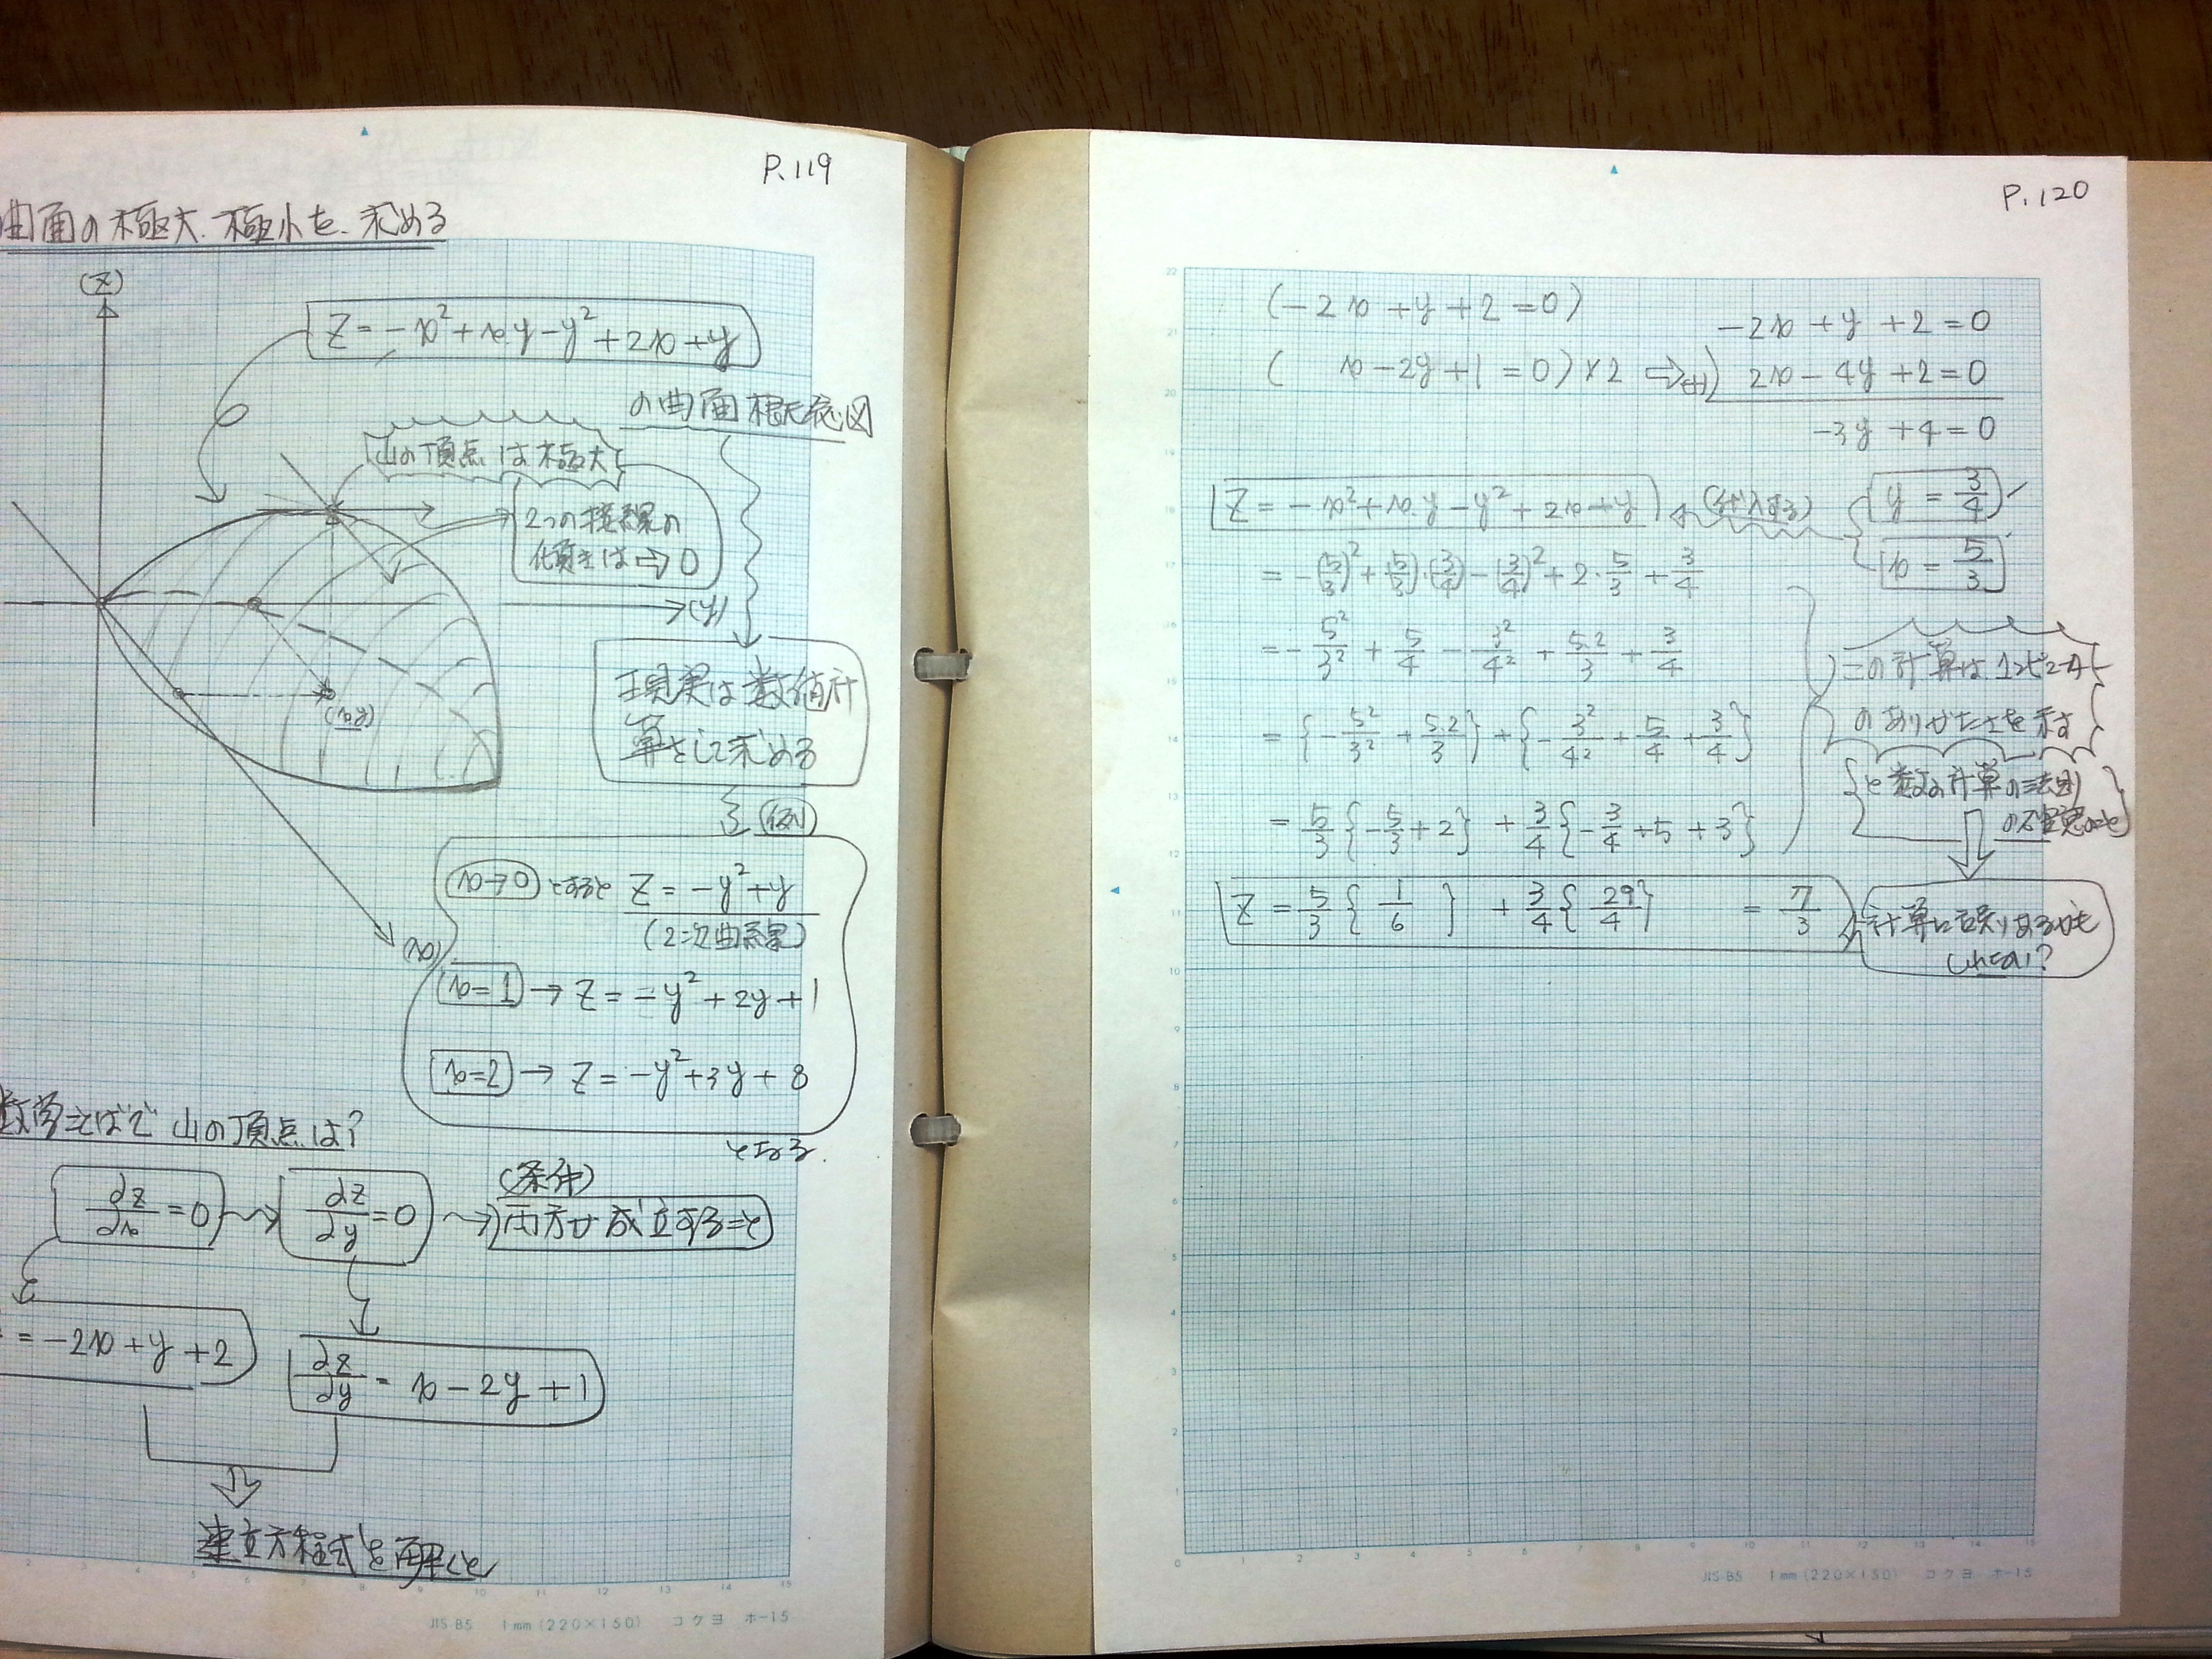 P.119
曲面の極大.極小を.求める
(Z)
Z = -x²+xy-y²+2x+y
の曲面概念図
山の頂点は極大で
2つの接線の
傾きは⇨0
(y)
(x,y)
現実は数値計
算をして求める
(例)
(x)
x→0 とすると Z = -y²+y
(2次曲線)
x=1 → Z = -y²+2y+1
x=2 → Z = -y²+3y+8
となる.
数学ことばで 山の頂点は?
∂z/∂x = 0 → ∂z/∂y = 0 → (条件)
両方が成立すること
= -2x+y+2
∂z/∂y = x-2y+1
連立方程式を解くと
JIS-B5 1mm(220×150) コクヨ ホ-15
P.120
(-2x+y+2=0)
(x-2y+1=0)×2 ⇨(+)
-2x+y+2=0
2x-4y+2=0
-3y+4=0
Z = -x²+xy-y²+2x+y ← (代入する)
y = 3/4 ✓
x = 5/3
= -(5/3)²+(5/3)·(3/4)-(3/4)²+2·5/3+3/4
= -5²/3²+5/4-3²/4²+5.2/3+3/4
= {-5²/3²+5.2/3}+{-3²/4²+5/4+3/4}
= 5/3{-5/3+2}+3/4{-3/4+5+3}
Z = 5/3{1/6}+3/4{29/4} = 7/3
この計算は
のありがたさを示す
と数の計算の法則
の確認のこと
計算に誤りあるかも
しれない?
JIS-B5 1mm(220×150) コクヨ ホ-15